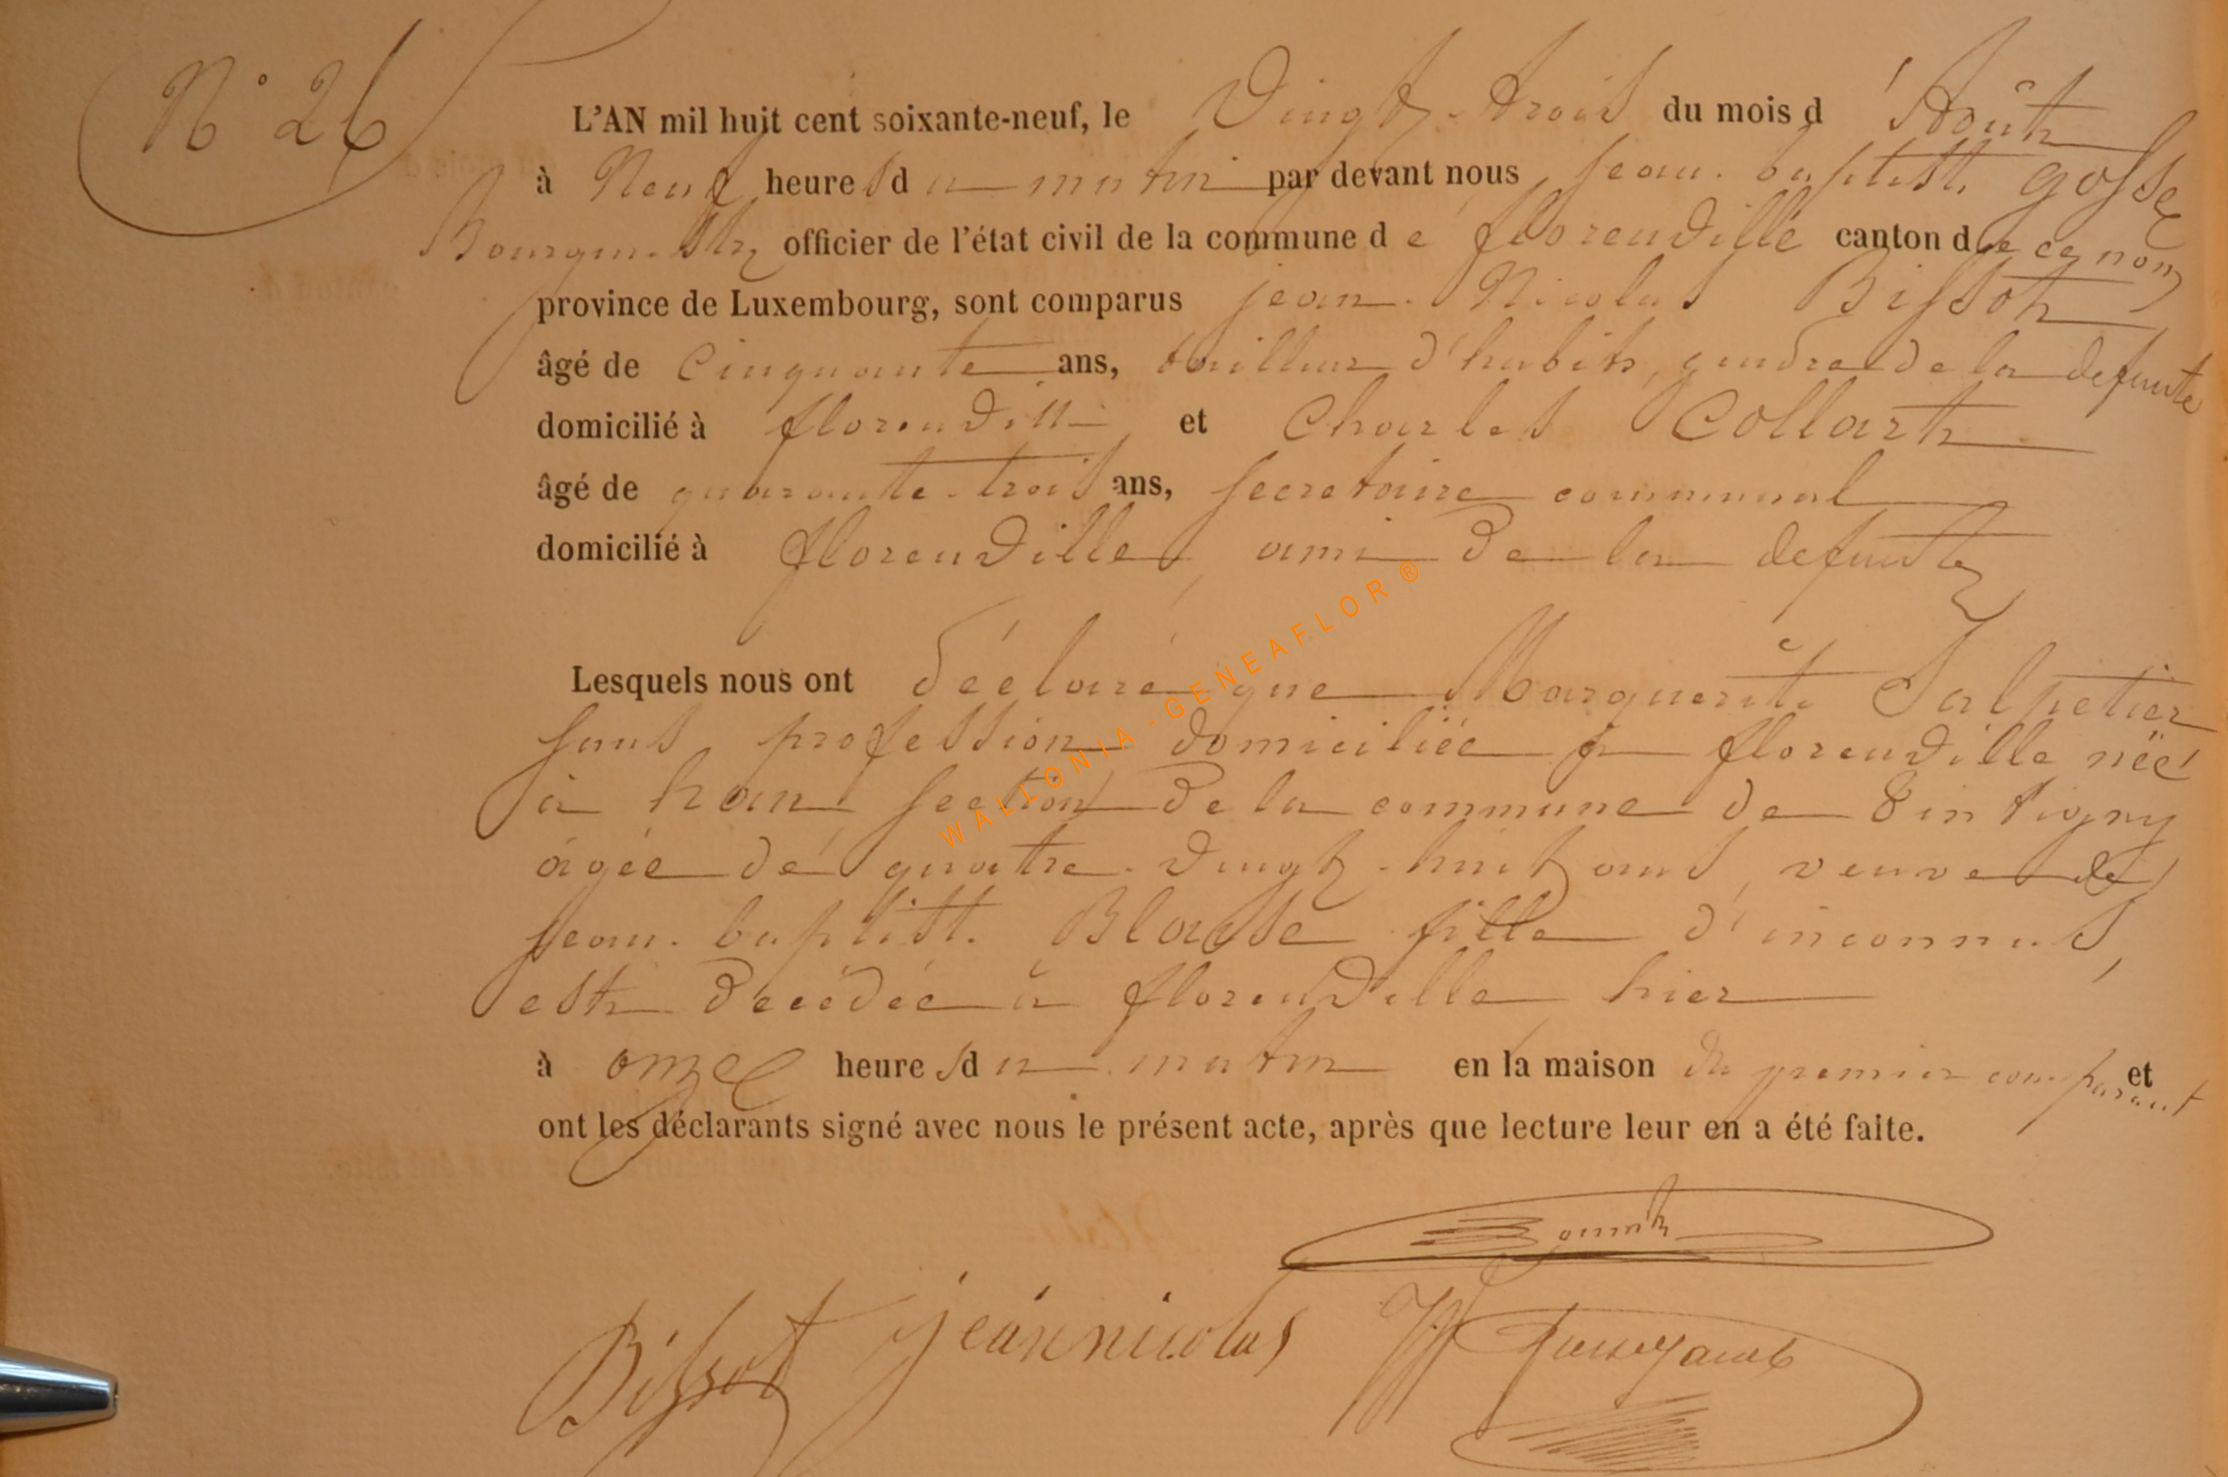 N° 26
L'AN mil huit cent soixante-neuf, le Vingt-trois du mois d'Août
à Neuf heures du matin par devant nous jean-baptiste gosse
Bourgmestre officier de l'état civil de la commune de florenville canton de ce nom
province de Luxembourg, sont comparus jean-Nicolas Bissot
âgé de Cinquante ans, tailleur d'habits, gendre de la defunte
domicilié à florenville et Charles Collart
âgé de quarante-trois ans, secretaire communal
domicilié à florenville, ami de la defunte
Lesquels nous ont déclaré que Marguerite Salpetier
sans profession domiciliée à florenville née
à han section de la commune de tintigny
âgée de quatre-vingt-huit ans, veuve de
jean-baptiste Blaise fille d'inconnus,
est décédée à florenville hier
à onze heures du matin en la maison du premier comparant et
ont les déclarants signé avec nous le présent acte, après que lecture leur en a été faite.
Bissot jean nicolas
WALLONIA-GENEAFLOR®